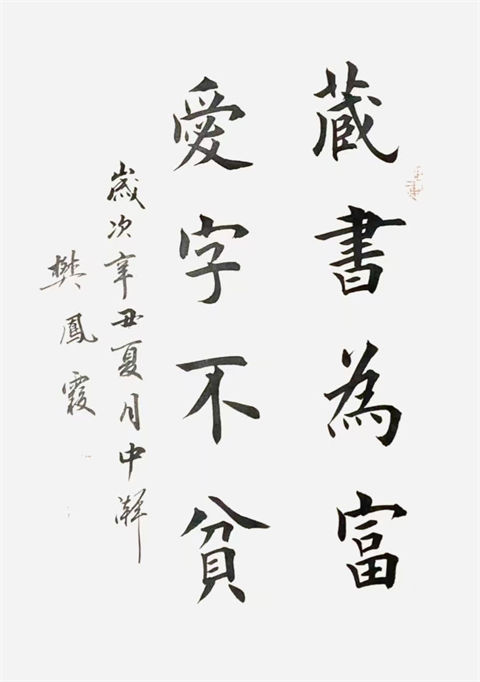 藏書為富
愛字不貧
歲次辛丑夏月中澣
樊鳳霞